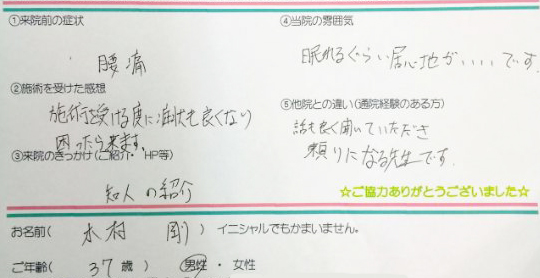 ①来院前の症状
腰痛
②施術を受けた感想
施術を受ける度に症状も良くなり
困ったら来ます。
③来院のきっかけ(ご紹介・HP等)
知人の紹介
④当院の雰囲気
眠れるぐらい居心地がいいです。
⑤他院との違い(通院経験のある方)
話も良く聞いていただき
頼りになる先生です。
☆ご協力ありがとうございました☆
お名前( 木村 剛 ) イニシャルでもかまいません。
ご年齢( 37歳 ) 男性・女性